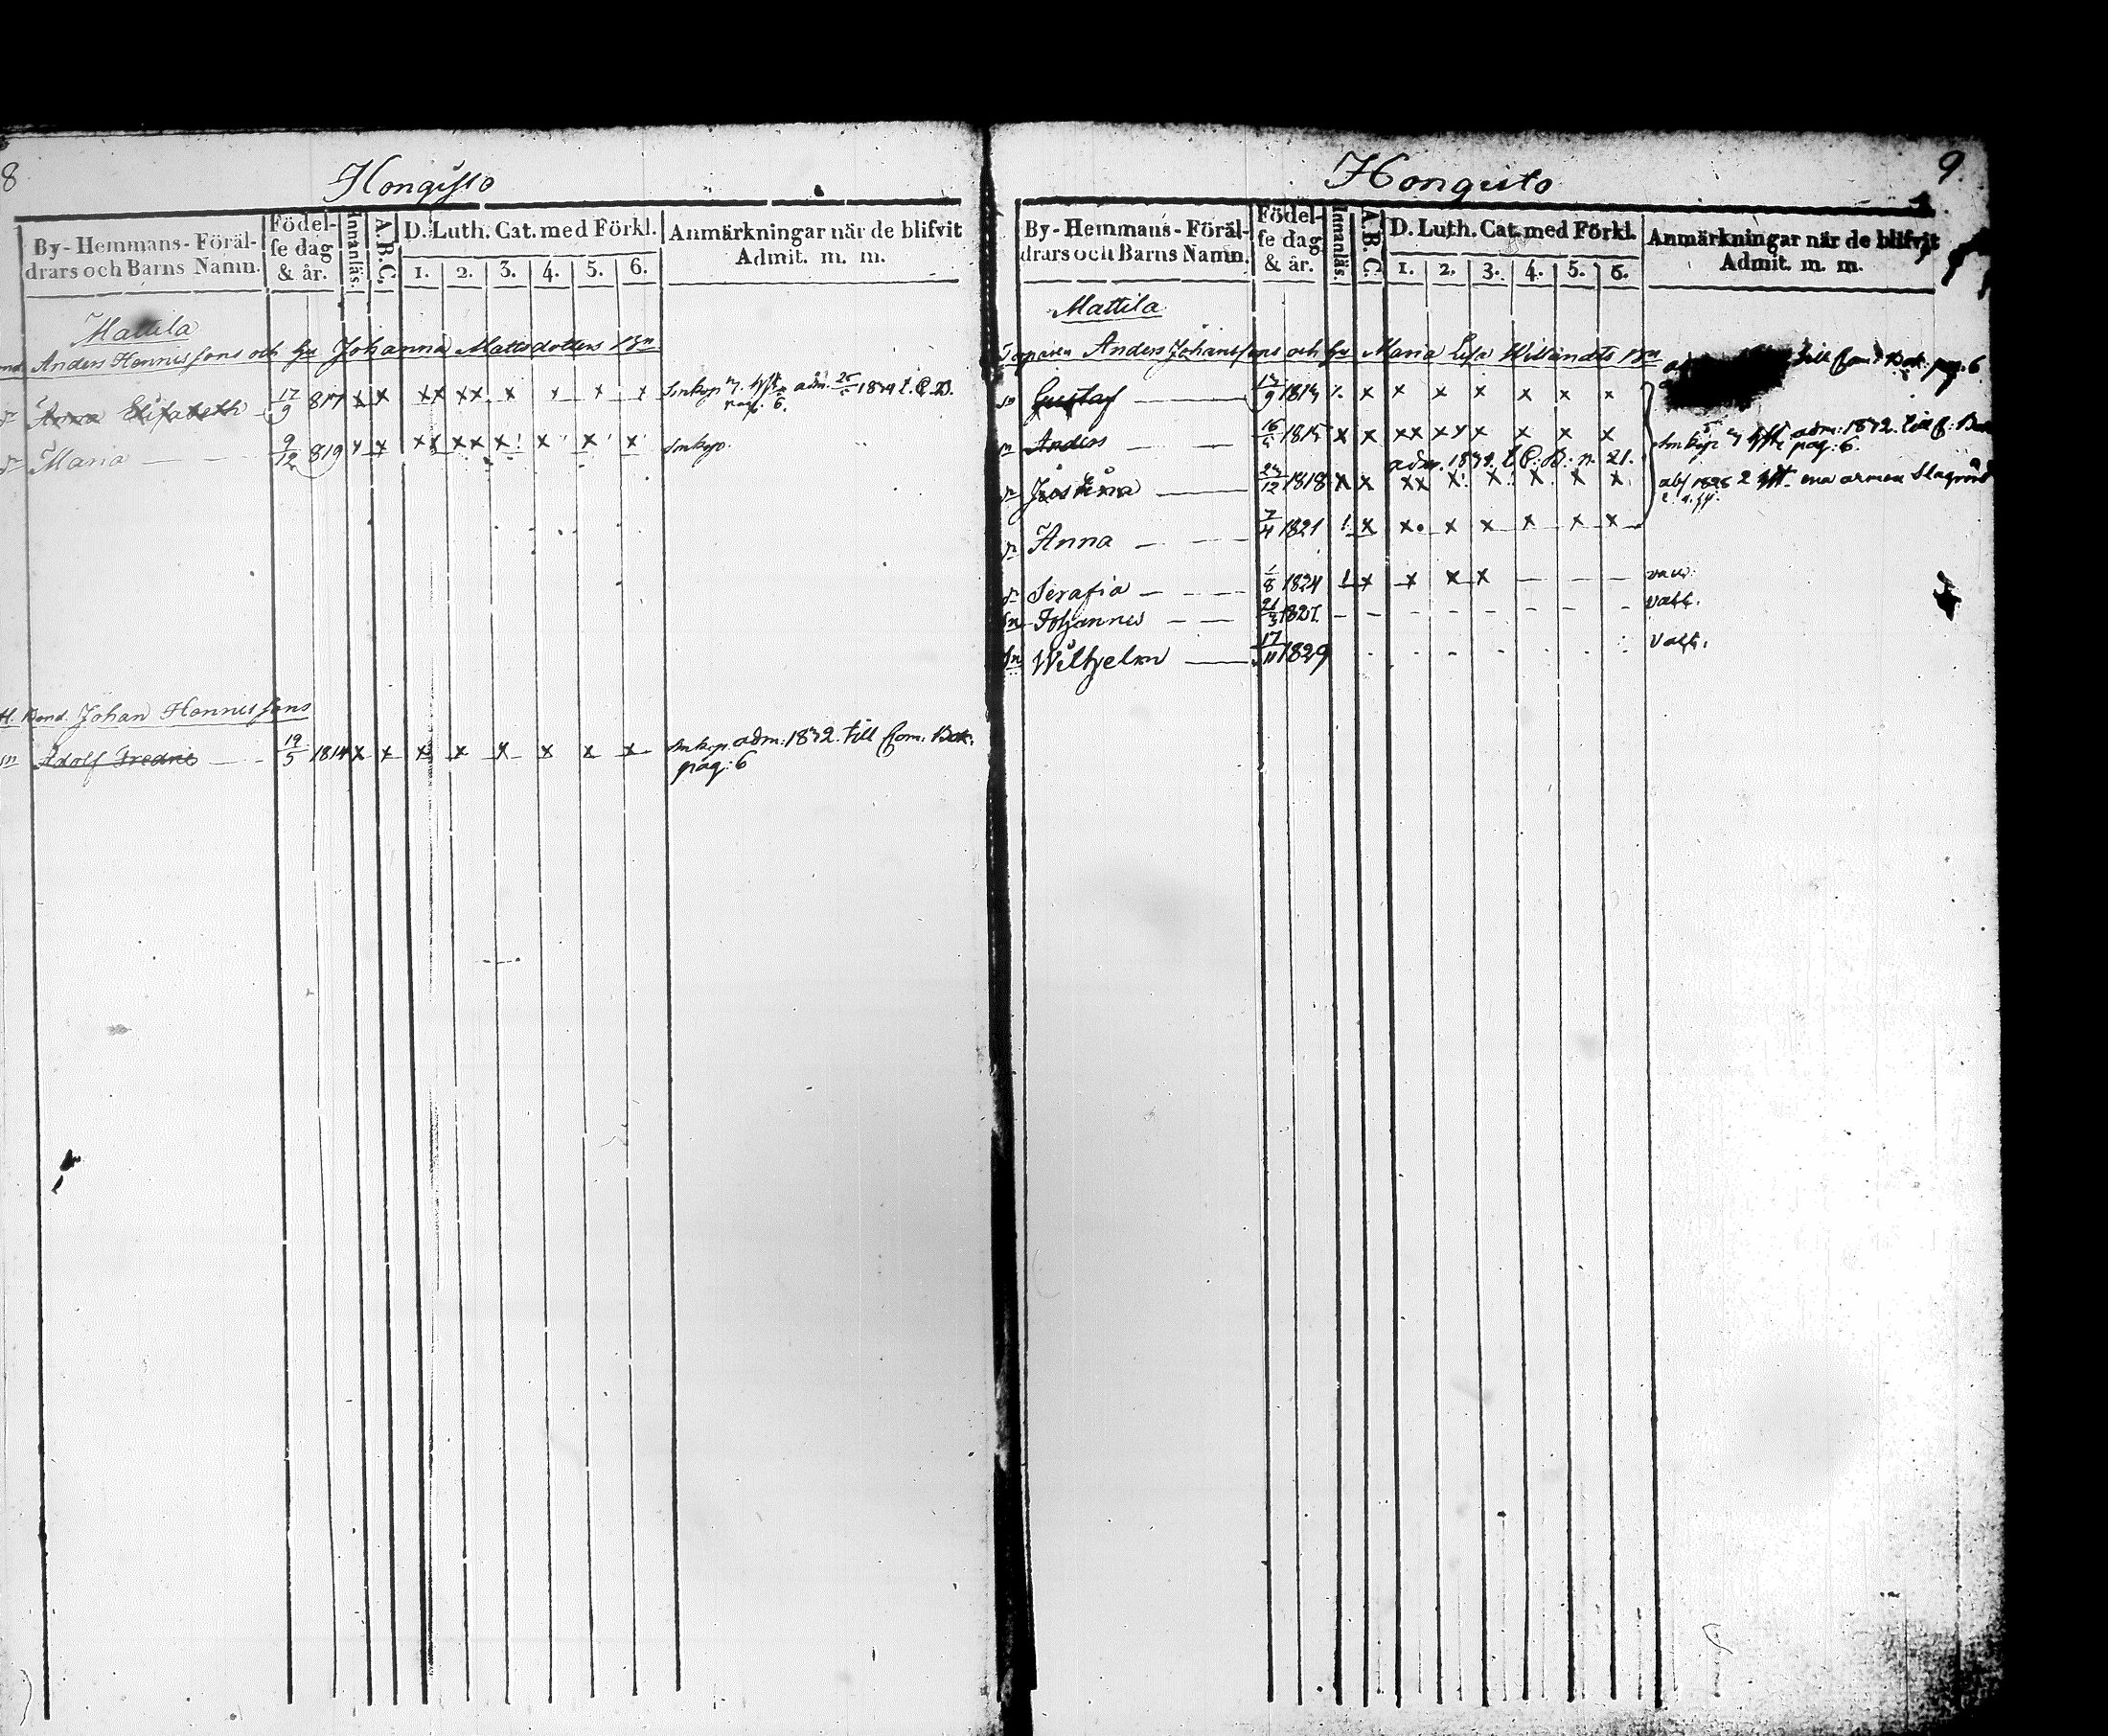 8
Hongisto
By-Hemmans-Föräl-
drars och Barns Namn.
Födel-
se dag
& år.
Innanläs.
A.B.C.
D. Luth. Cat. med Förkl.
1. 2. 3. 4. 5. 6.
Anmärkningar när de blifvit
Admit. m. m.
Mattila
Anders Hennis sons och hu Johanna Mattsdotters Bn
dr Anna Elisabeth 17/9 817 x x xx xx x x x x adm. 25/ 1834 t. C. B.
pag. 6.
dr Maria 9/12 819 x x xx xx x x x x Smkop.
Bond. Johan Hennis sons
sn Adolf Fredric 19/5 1814 x x x x x x x x Smkop. adm: 1832. till Com: Bok.
pag: 6
9.
Hongisto
By-Hemmans-Föräl-
drars och Barns Namn.
Födel-
se dag
& år.
Innanläs.
A.B.C.
D. Luth. Cat. med Förkl.
1. 2. 3. 4. 5. 6.
Anmärkningar när de blifvit
Admit. m. m.
Mattila
Torparen Anders Johanssons och hu Maria Lisa Bn
sn Gustaf 1813 x x x x x x x till Com: Bok: pag: 6
sn Anders 1815 x x xx xx x x x x Smkop adm: 1832. till C: Bok
pag: 6.
adm. t. C: B: p. 21.
dr 1818 x x xx x x x x x
dr Anna 7/4 1821 x x x x x x x
dr Serafia 1/8 1824 x x x x — — — vacc.
sn Johannes 21/3 1827. — — — — — — — — vacc.
sn Wilhelm 17/11 1829 vacc.